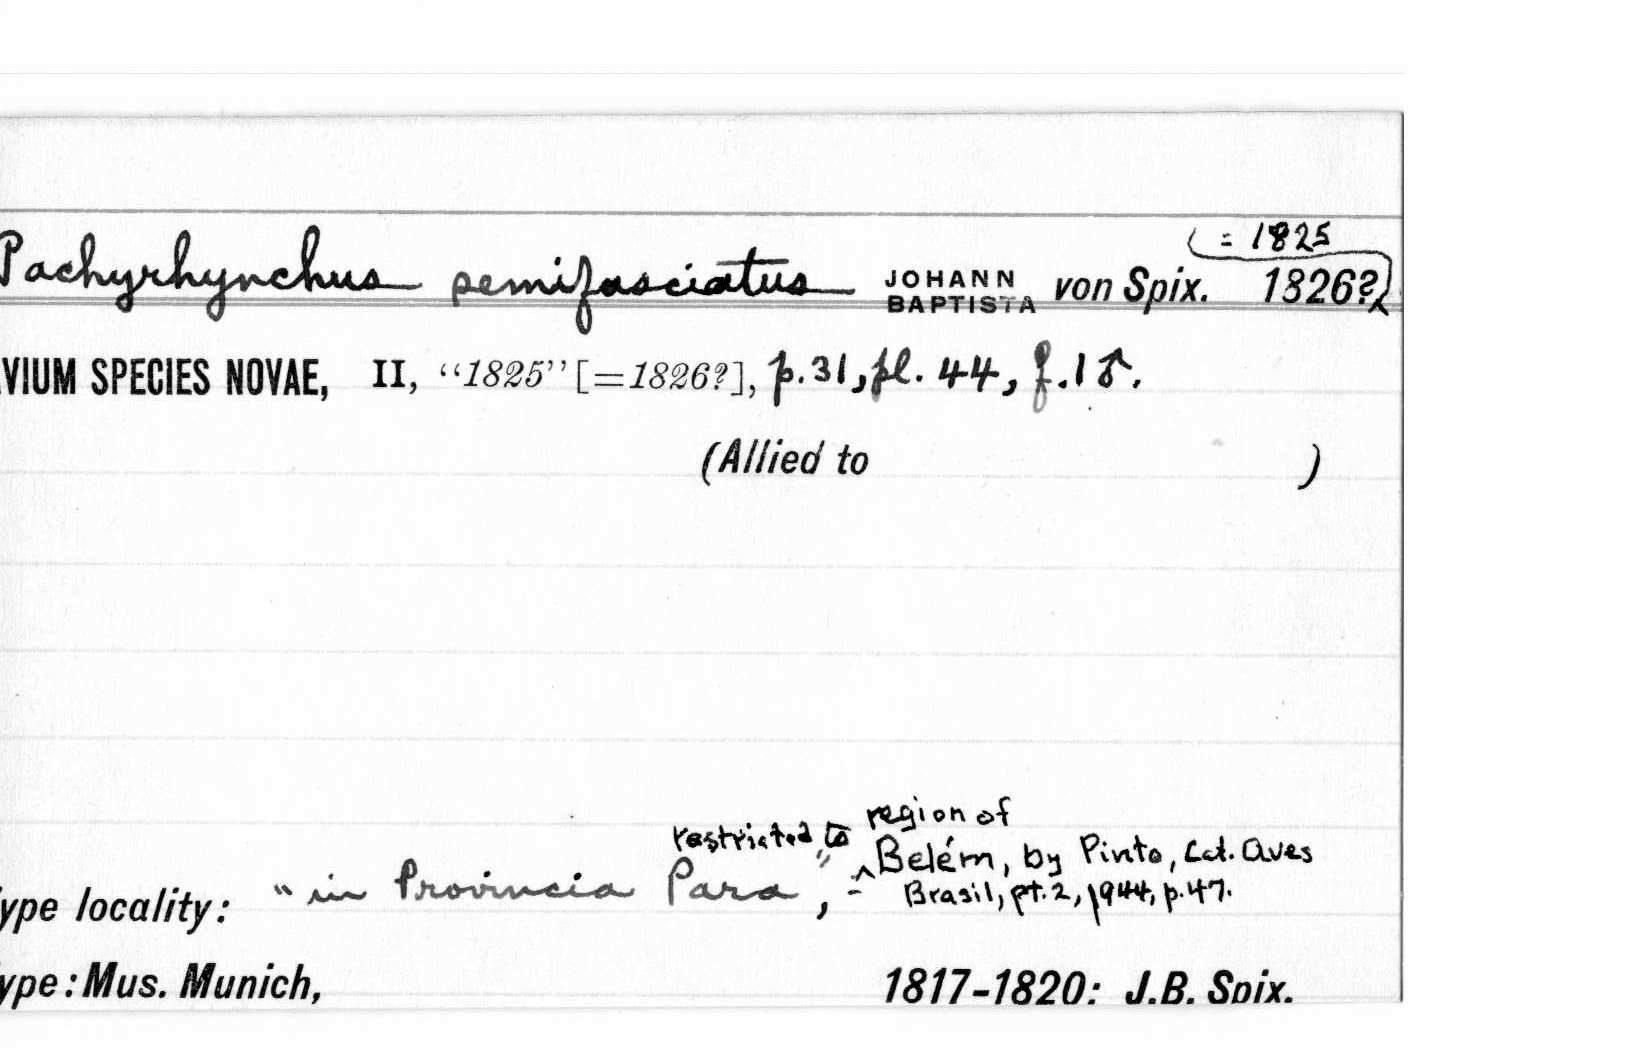 Pachyrhynchus semifasciatus JOHANN BAPTISTA von Spix. 1826? (= 1825)
VIUM SPECIES NOVAE, II, "1825" [=1826?], p. 31, pl. 44, f. 1 ♂.
(Allied to )
restricted to region of
ype locality: "in Provincia Para," - Belém, by Pinto, Cat. Aves
Brasil, pt. 2, 1944, p. 47.
ype: Mus. Munich, 1817-1820: J.B. Spix.